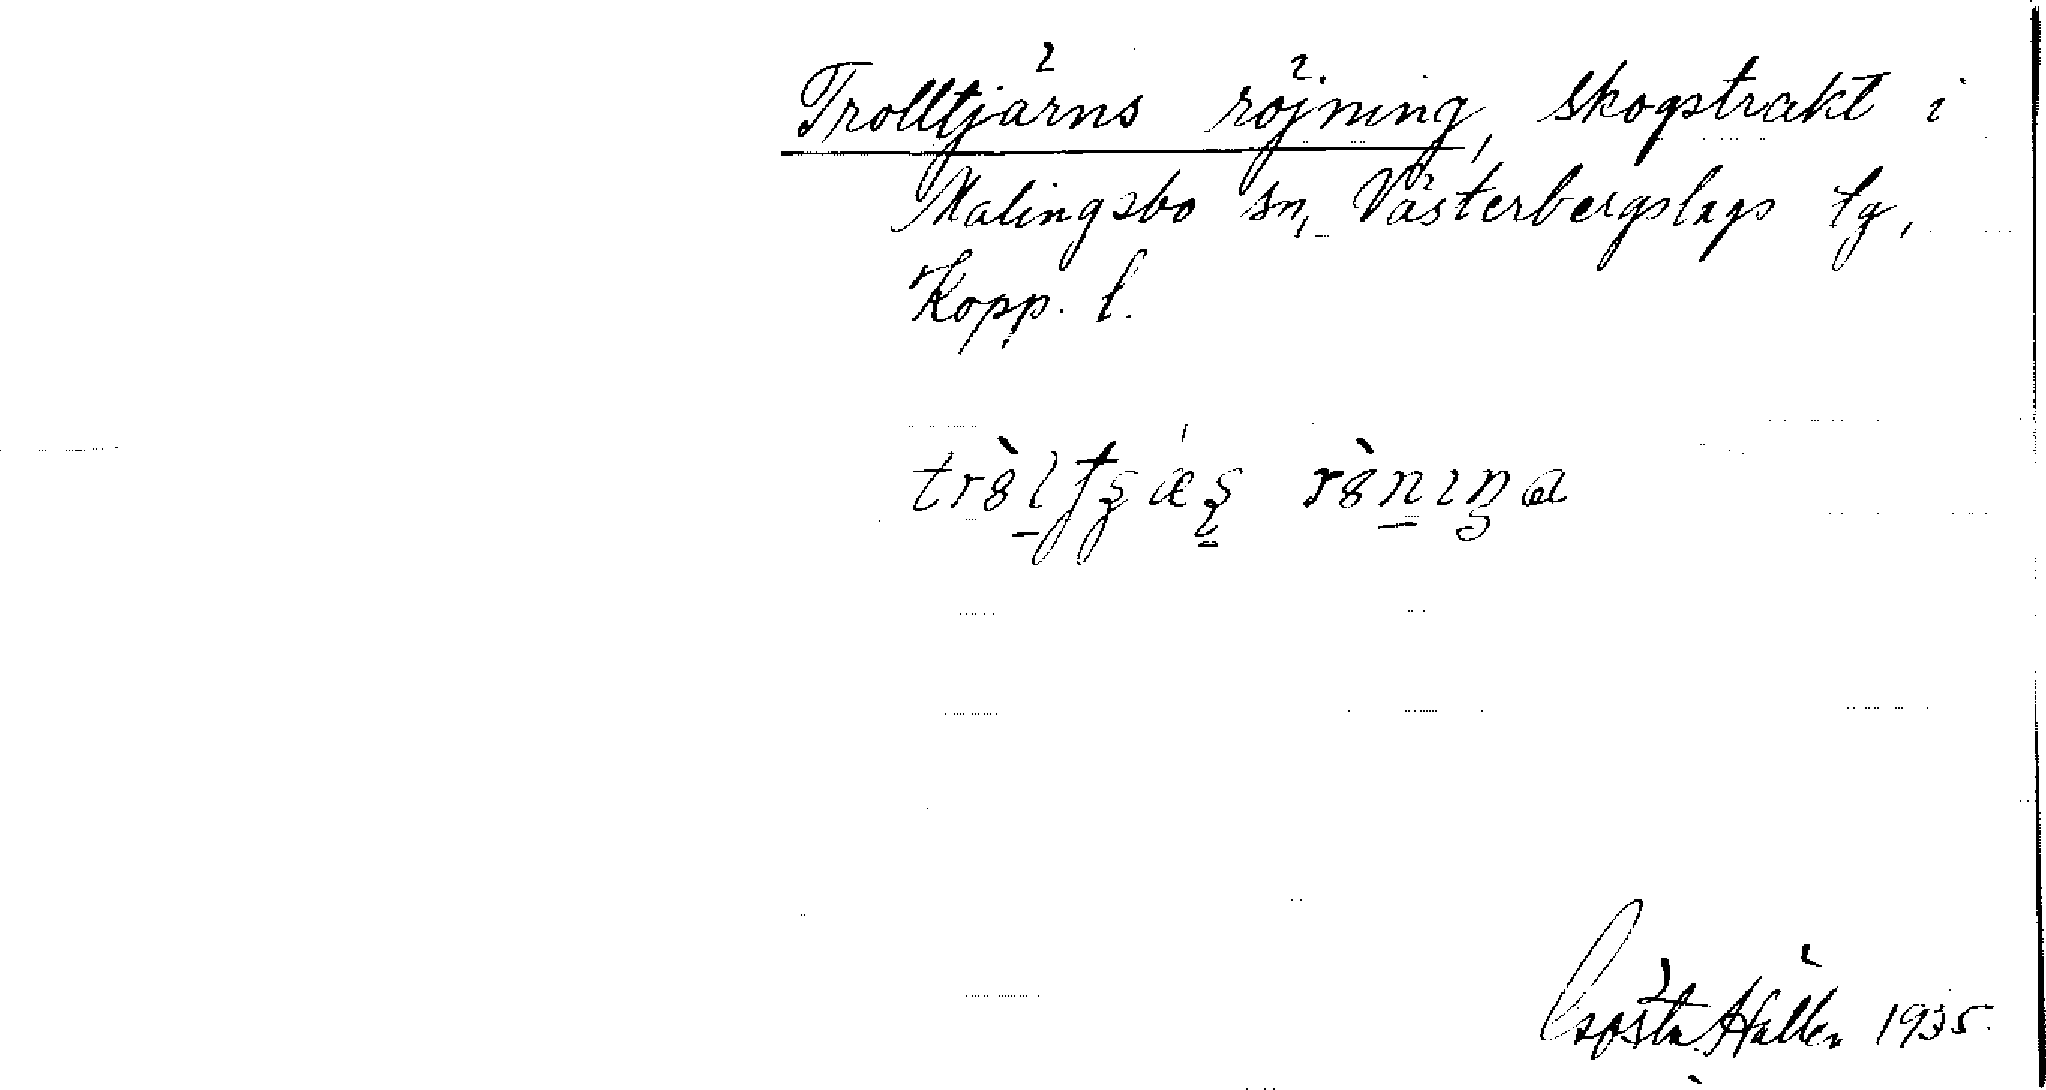 Trolltjärns röjning, skogstrakt i
Malingsbo sn, Västerbergslags tg,
Kopp. l.
Gösta Hallén 1935.